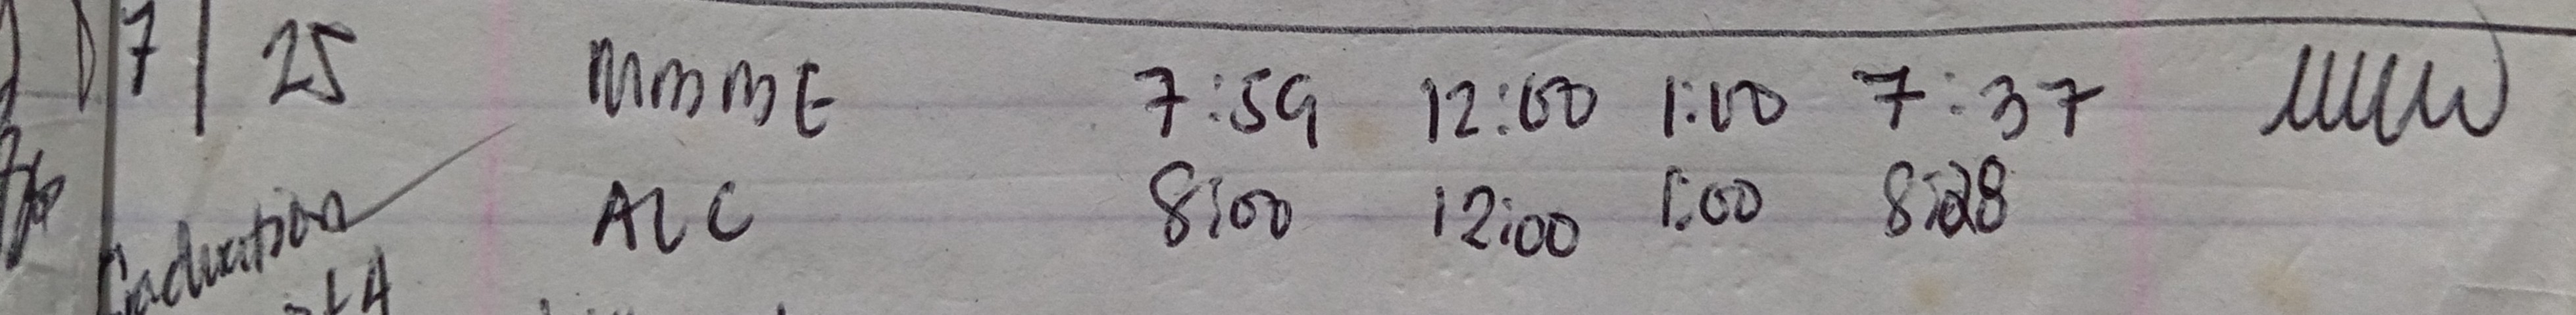 7/25 MMMME 7:59 12:00 1:00 7:37
ALC 8:00 12:00 1:00 8:28
Graduation